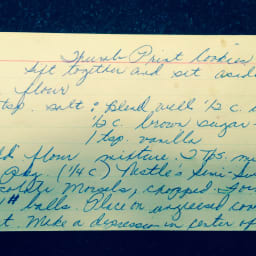 Thumb Print Cookies
Sift together and set aside
flour
tsp. salt; Blend well ½ c.
½ c. brown sugar -
1 tsp. vanilla
flour mixture. 2 Tbs. mi
Pkg. (¼ C) Nestle's Semi-Sw
Morsels, chopped. For
1" balls. Place on ungreased coo
t. Make a depression in center of